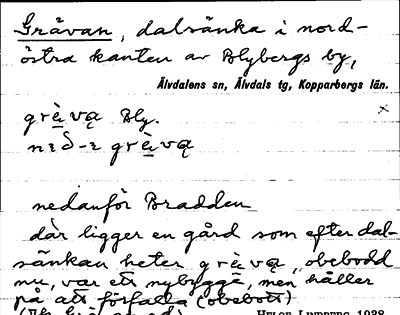 Grävan, dalsänka i nord-
östra kanten av Blybergs by,
Älvdalens sn, Älvdals tg, Kopparbergs län.
grὲvą Bly.
nedanför Bradden
där ligger en gård som efter dal-
sänkan heter grὲvą, obebodd
nu, var ett nybygge, men håller
på att förfalla (obebott)
HELGE LINDBERG 1938